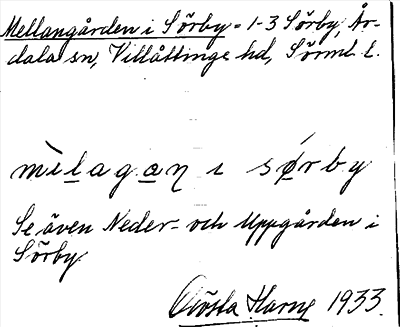 Mellangården i Sörby = 1-3 Sörby, Är-
dala sn, Villåttinge hd, Sörml. l.
mèlagaṇ i sǿrby
Se även Neder- och Uppgården i
Sörby.
Gösta Harne 1933.